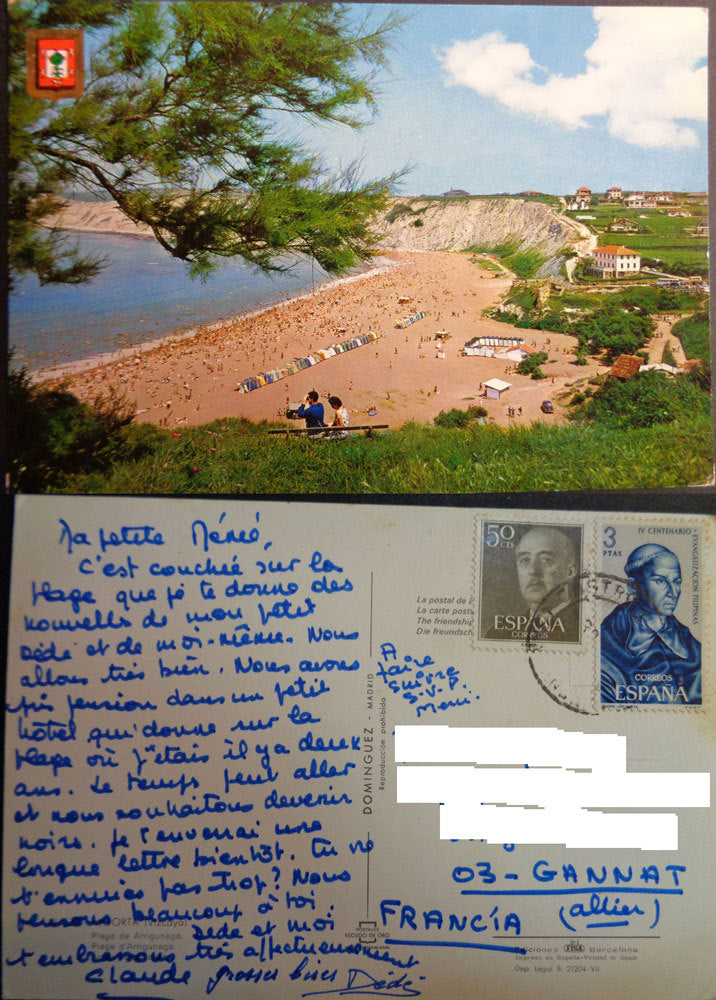 Ma petite Mémé,
C'est couchée sur la
plage que je te donne des
nouvelles de mon petit
Dédé et de moi-même. Nous
allons très bien. Nous avons
pris pension dans un petit
hôtel qui donne sur la
plage où j'étais il y a deux
ans. Le temps peut aller
et nous souhaitons devenir
noirs. Je t'enverrai une
longue lettre bientôt. Tu ne
t'ennuies pas trop? Nous
pensons beaucoup à toi.
Dédé et moi
t'embrassons très affectueusement
Claude grosses bises Dédé
ORTA (Vizcaya)
Playa de Arrigunaga
Plage d'Arrigunaga
DOMINGUEZ - MADRID
Reproducción prohibida
POSTALES
ESCUDO DE ORO
50
CTS
ESPAÑA
CORREOS
3
PTAS
IV CENTENARIO - EVANGELIZACION FILIPINAS
CORREOS
ESPAÑA
La postal de
La carte posta
The friendship
Die freundsch
A
faire
suivre
S.V.P.
Merci.
03 - GANNAT
(allier)
FRANCÍA
Ediciones FISA Barcelona
Impreso en España-Printed in Spain
Dep. Legal B. 21204-VII